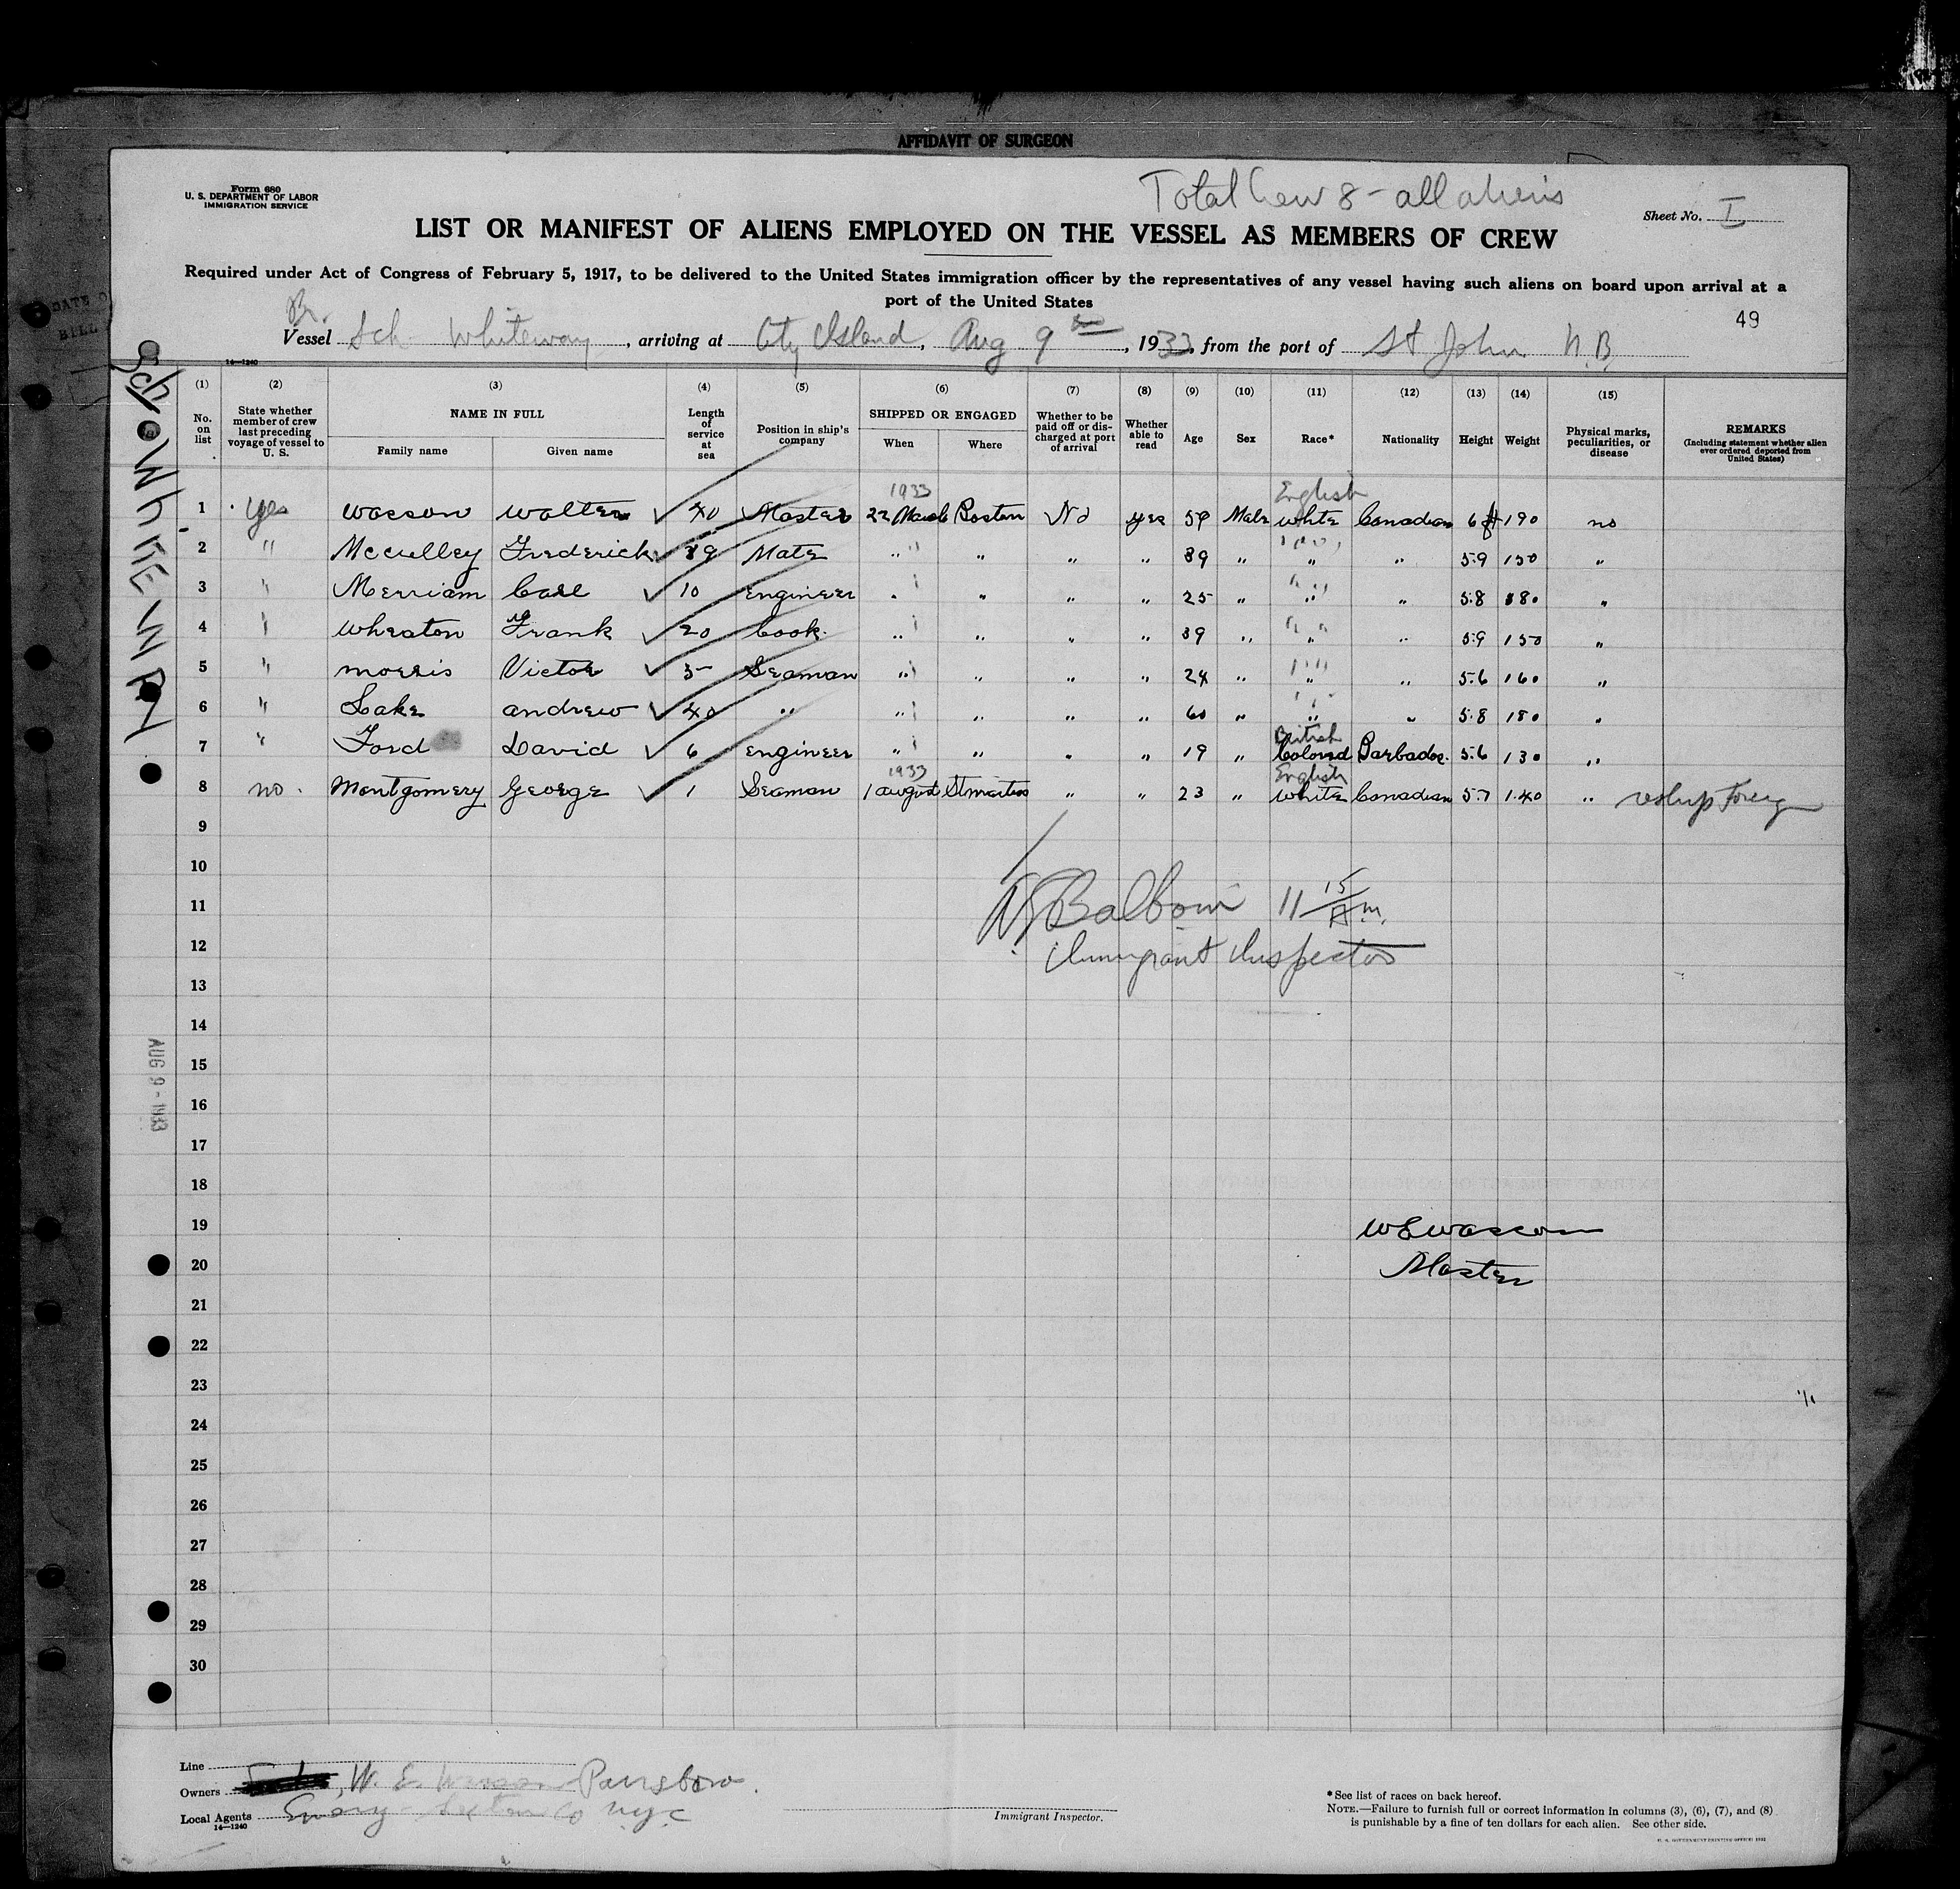 AFFIDAVIT OF SURGEON
Form 680
U. S. DEPARTMENT OF LABOR
IMMIGRATION SERVICE
Total Crew 8 - all aliens
Sheet No. I
LIST OR MANIFEST OF ALIENS EMPLOYED ON THE VESSEL AS MEMBERS OF CREW
Required under Act of Congress of February 5, 1917, to be delivered to the United States immigration officer by the representatives of any vessel having such aliens on board upon arrival at a
port of the United States
49
Br.
Vessel Sch Whiteway, arriving at City Island, Aug 9th, 1933, from the port of St John N.B.
14—1240
(1) (2) (3) (4) (5) (6) (7) (8) (9) (10) (11) (12) (13) (14) (15)
No. on list
State whether member of crew last preceding voyage of vessel to U. S.
NAME IN FULL
Family name
Given name
Length of service at sea
Position in ship's company
SHIPPED OR ENGAGED
When
Where
Whether to be paid off or discharged at port of arrival
Whether able to read
Age
Sex
Race*
Nationality
Height
Weight
Physical marks, peculiarities, or disease
REMARKS
(Including statement whether alien ever ordered deported from United States)
1933 English
1 Yes Wasson Walter 40 Master 22 March Boston No yes 59 Male White Canadian 6 ft 190 no
2 " McCulley Frederick 39 Mate " " " " 39 " " " 5.9 150 "
3 " Merriam Carl 10 Engineer " " " " 25 " " " 5.8 180 "
4 " Wheaton Frank 20 Cook " " " " 39 " " " 5.9 150 "
5 " Morris Victor 5 Seaman " " " " 24 " " " 5.6 160 "
6 " Lake Andrew 40 " " " " " 60 " " " 5.8 180 "
British
7 " Ford David 6 Engineer " " " " 19 " Colored Barbados 5.6 130 "
1933 English
8 no Montgomery George 1 Seaman 1 August St Martins " " 23 " White Canadian 5.7 140 " reship Foreign
9
10
11 Balboni 11 15 A.m.
12 Immigrant Inspector
13
14
15
16
17
18
19 W E Wasson
20 Master
21
22
23
24
25
26
27
28
29
30
Sch. WHITEWAY
AUG 9 - 1933
Line
Owners W. E. Wasson Parrsboro.
Local Agents Co N.Y.C
14—1240
Immigrant Inspector.
* See list of races on back hereof.
NOTE.—Failure to furnish full or correct information in columns (3), (6), (7), and (8)
is punishable by a fine of ten dollars for each alien. See other side.